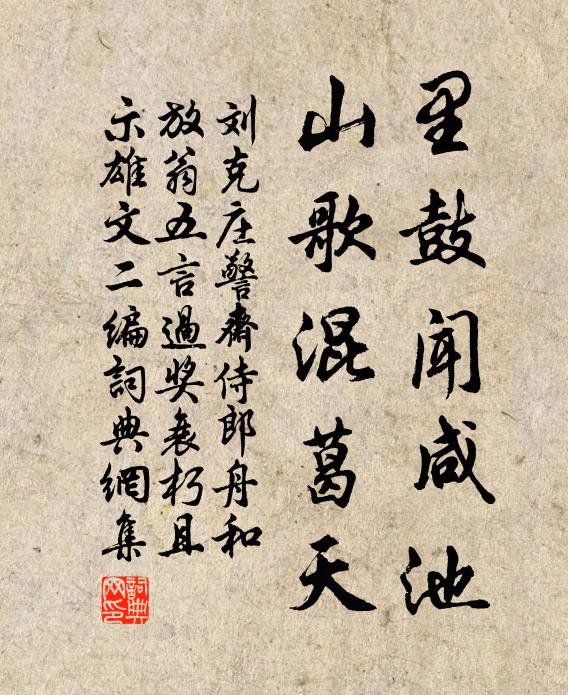 里鼓闻咸池
山歌混葛天
刘克庄警斋侍郎舟和
放翁五言過奖衰朽且
示雄文二编詞典網集
詞典网印